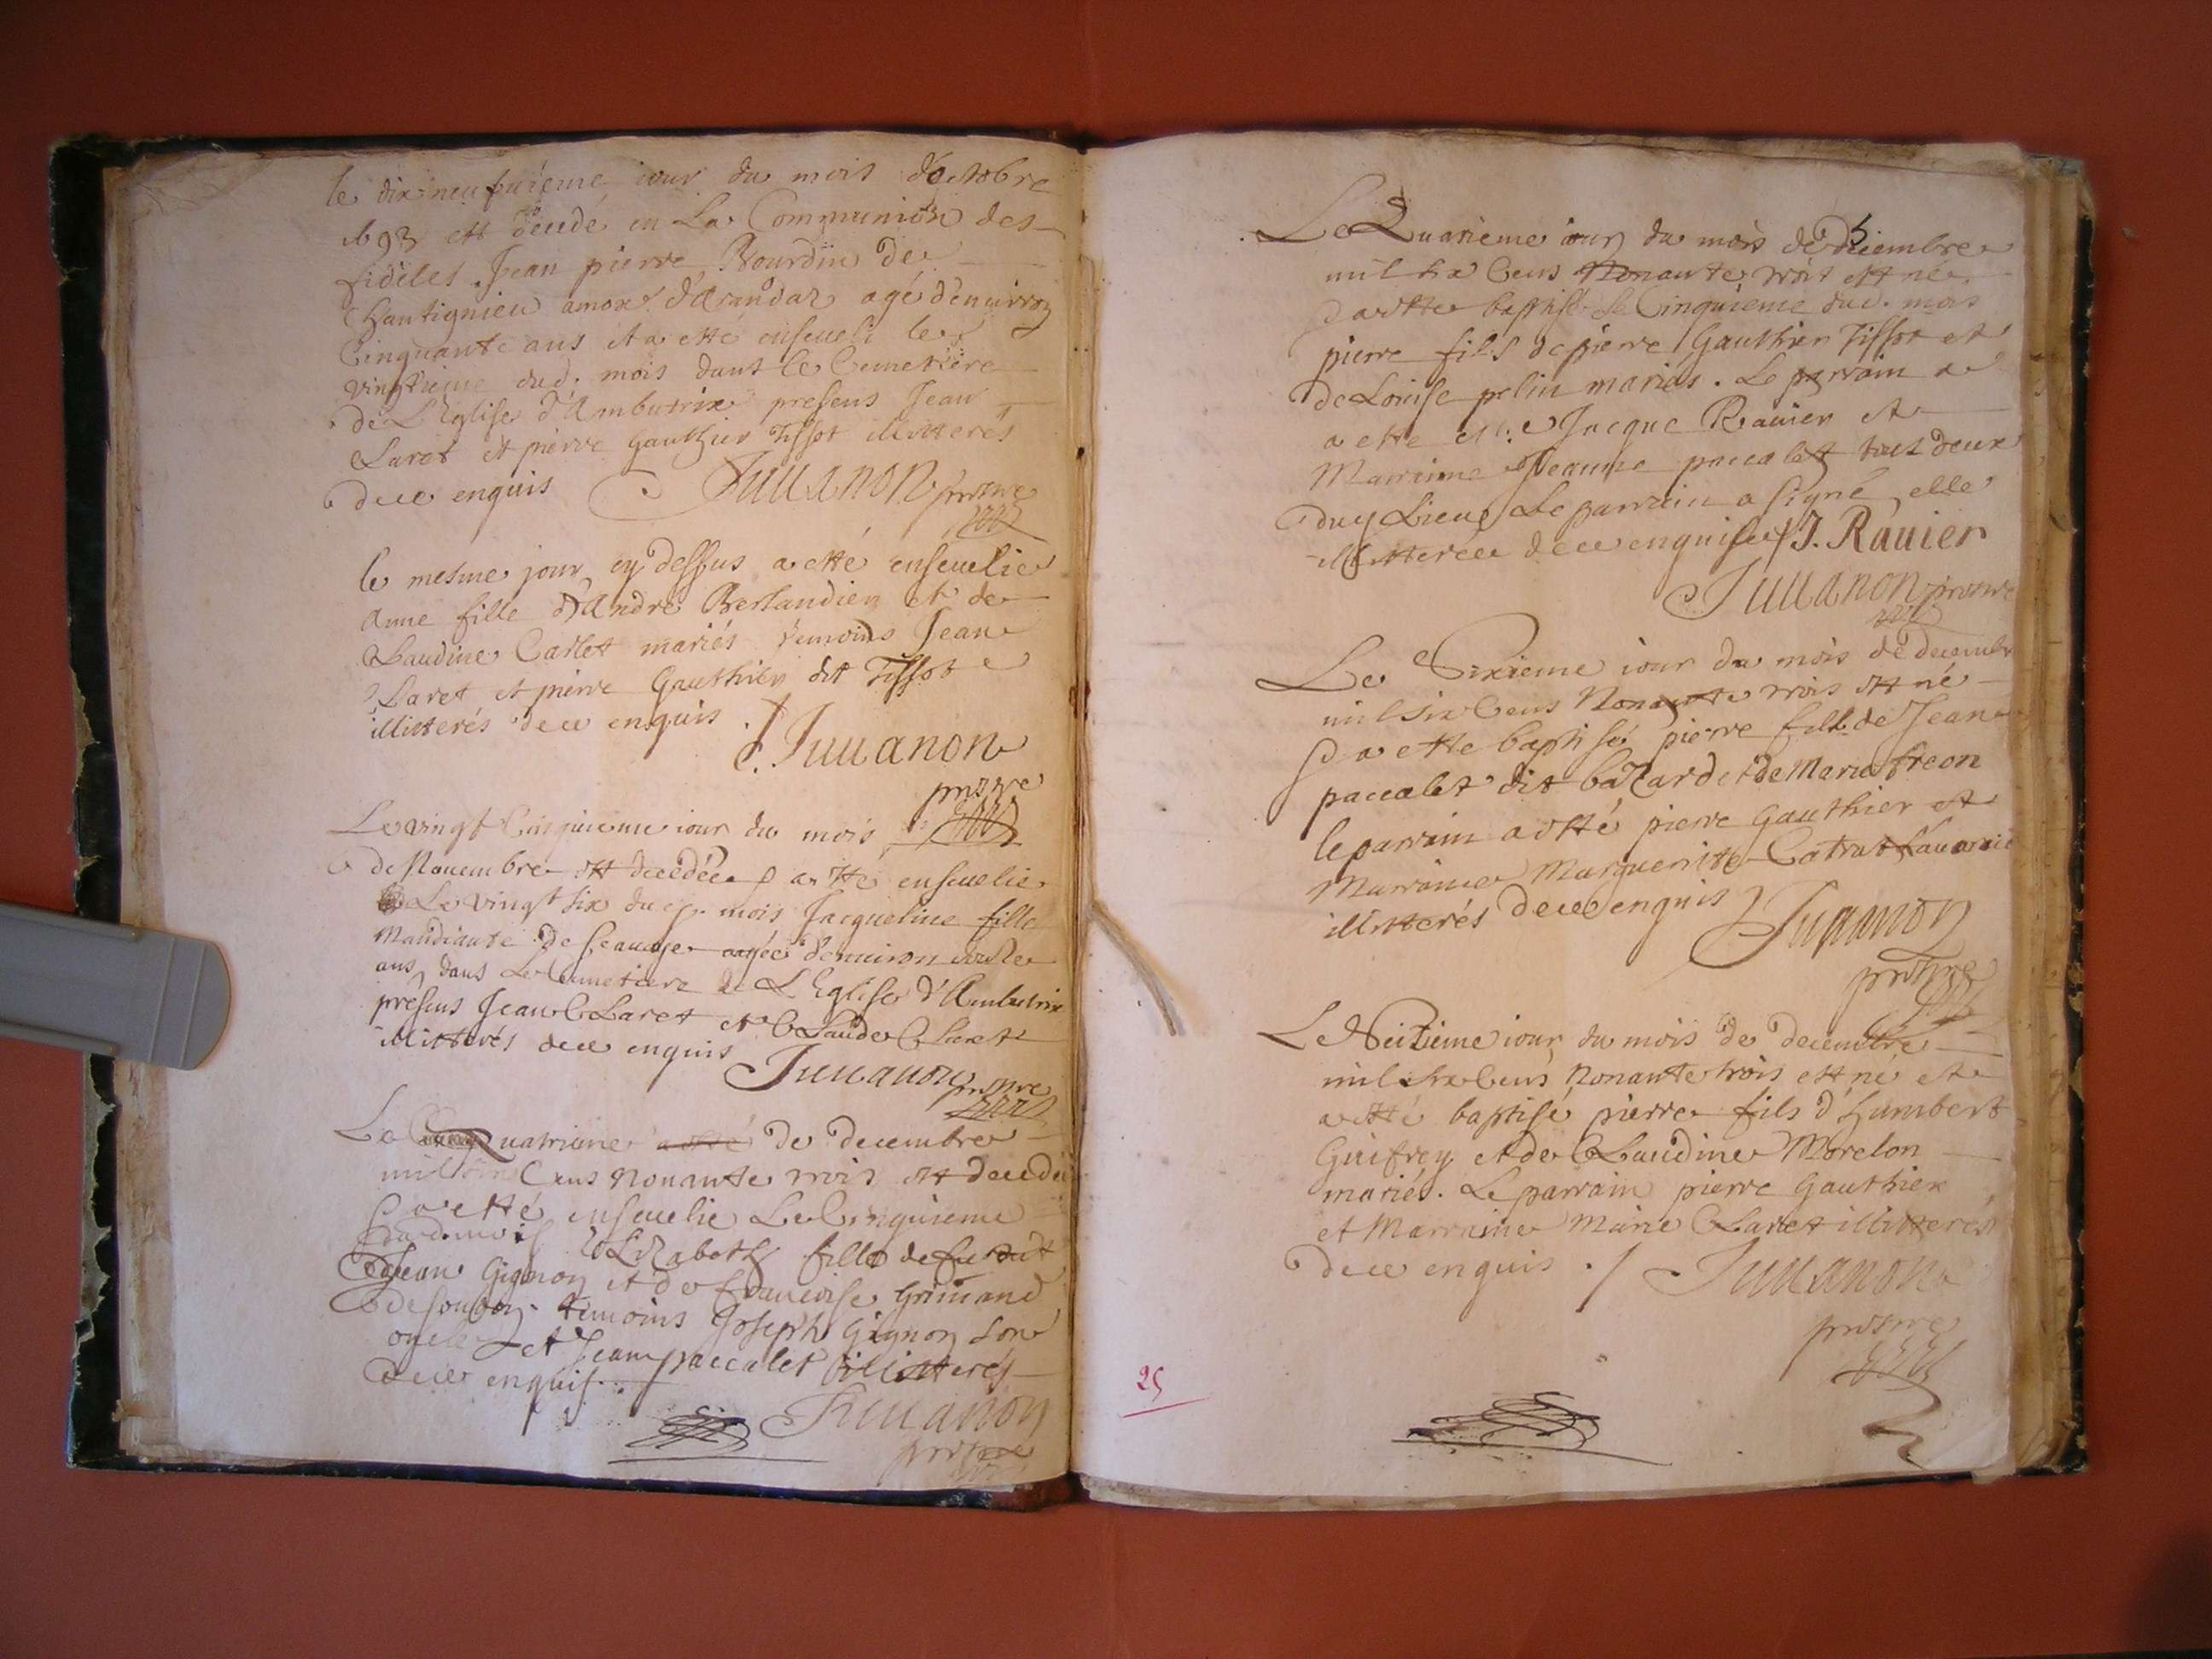 le dix neufuieme iour du mois d'octobre
1693 est decedé en La Communion des
fideles Jean pierre Bourdin de
Chantignieu d'Arandaz agé d'enuiron
Cinquante ans et a esté enseueli le
vingtieme dud. mois dans le Cemetiere
de L'Eglise d'Ambutrix presens Jean
Claret et pierre Gauthier Tissot illitterés
de ce enquis Juuanon prestre
le mesme jour cy dessus a esté enseuelie
Anne fille d'André Berlandier et de
Claudine Carlet mariés temoins Jean
Claret et pierre Gauthier dit Tissot
illitterés de ce enquis. Juuanon
prestre
Le vingt Cinquieme iour du mois
de Nouembre est decedée et a esté enseuelie
Le vingt six du mois Jacqueline fille
Mandiante de agée d'enuiron
ans, dans Le Cemetiere de L'Eglise d'Ambutrix
presens Jean Claret et Claude Claret
illitterés de ce enquis Juuanon prestre
Le Quatrieme a esté de decembre
mil six Cens Nonante trois est decedée
et a esté enseuelie Le Cinquieme
dud. mois Elizabeth fille de
Jean Gignon et de francoise Grimand
de souclin temoins Joseph Gignon son
oncle et Jean paccalet illitterés
de ce enquis. Juuanon
prestre
Le Quatrieme iour du mois de Decembre
mil six Cens Nonante trois est né
et a esté baptisé le Cinquieme dud. mois
pierre fils de pierre Gauthier Tissot et
de Louise pelin mariés. Le parrain a
a esté Jacque Rauier et
Marraine Jeanne paccalet tous deux
du lieu Le parrain a signé, elle
illitterée de ce enquise J. Rauier
Juuanon prestre
Le Sixieme iour du mois de decembre
mil six Cens Nonante trois est né
et a esté baptisé pierre fils de Jean
paccalet dit bazard et de Marie freon
le parrain a esté pierre Gauthier et
Marraine Marguerite Catrat
illitterés de ce enquis Juuanon
prestre
Le Neitieme iour du mois de decembre
mil six Cens Nonante trois est né et
a esté baptisé pierre fils d'Humbert
Guifrey et de Claudine Morelon
mariés. Le parrain pierre Gauthier
et Marraine Marie Claret illitterés
de ce enquis. / Juuanon
prestre
25